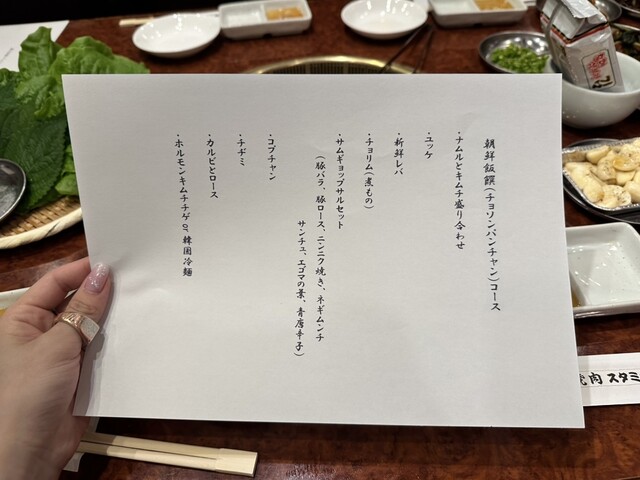 朝鮮飯饌(チョソンバンチャン)コース
・ナムルとキムチ盛り合わせ
・ユッケ
・新鮮レバ
・チョリム(煮もの)
・サムギョップサルセット
(豚バラ、豚ロース、ニンニク焼き、ネギムンチ
サンチュ、エゴマの葉、青唐辛子)
・コプチャン
・チヂミ
・カルビとロース
・ホルモンキムチチゲ or 韓国冷麺
肉 スタミ